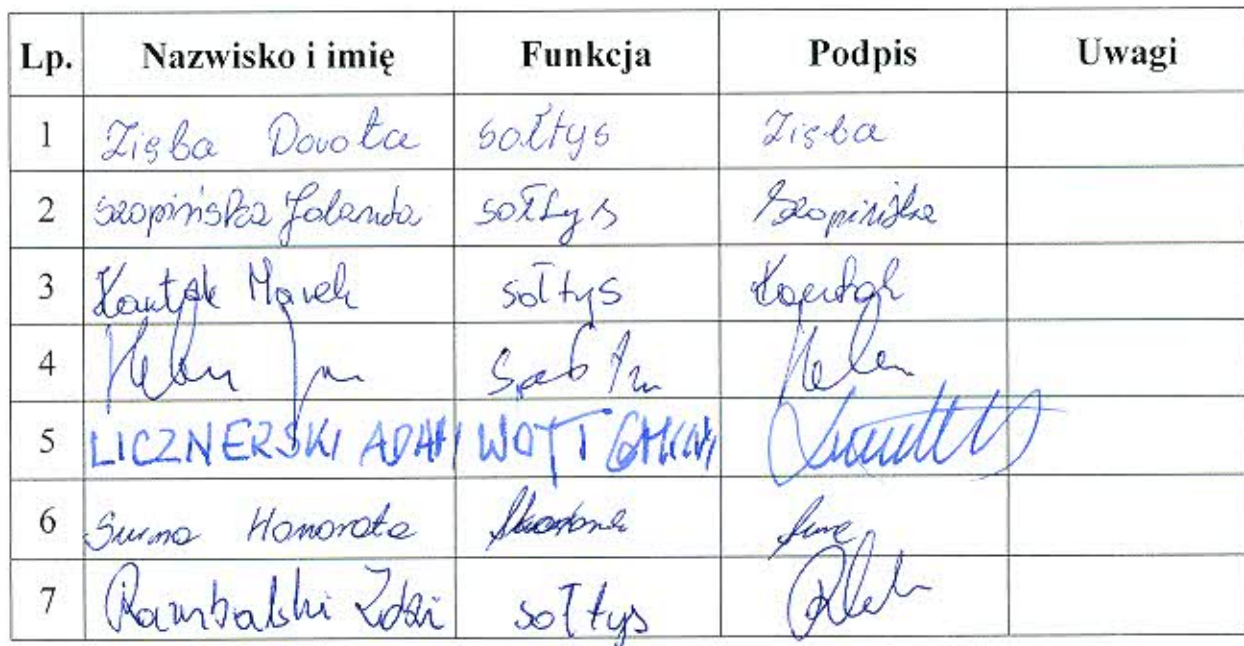 Lp. Nazwisko i imię Funkcja Podpis Uwagi
1 Zięba Dorota sołtys Zięba
2 Szopińska Jolanda sołtys Szopińska
3 Kantak Marek sołtys Kantak
4
5 LICZNERSKI ADAM WÓJT GMINY
6 Surma Honorata Skarbnik
7 Rambalski Zdzi sołtys